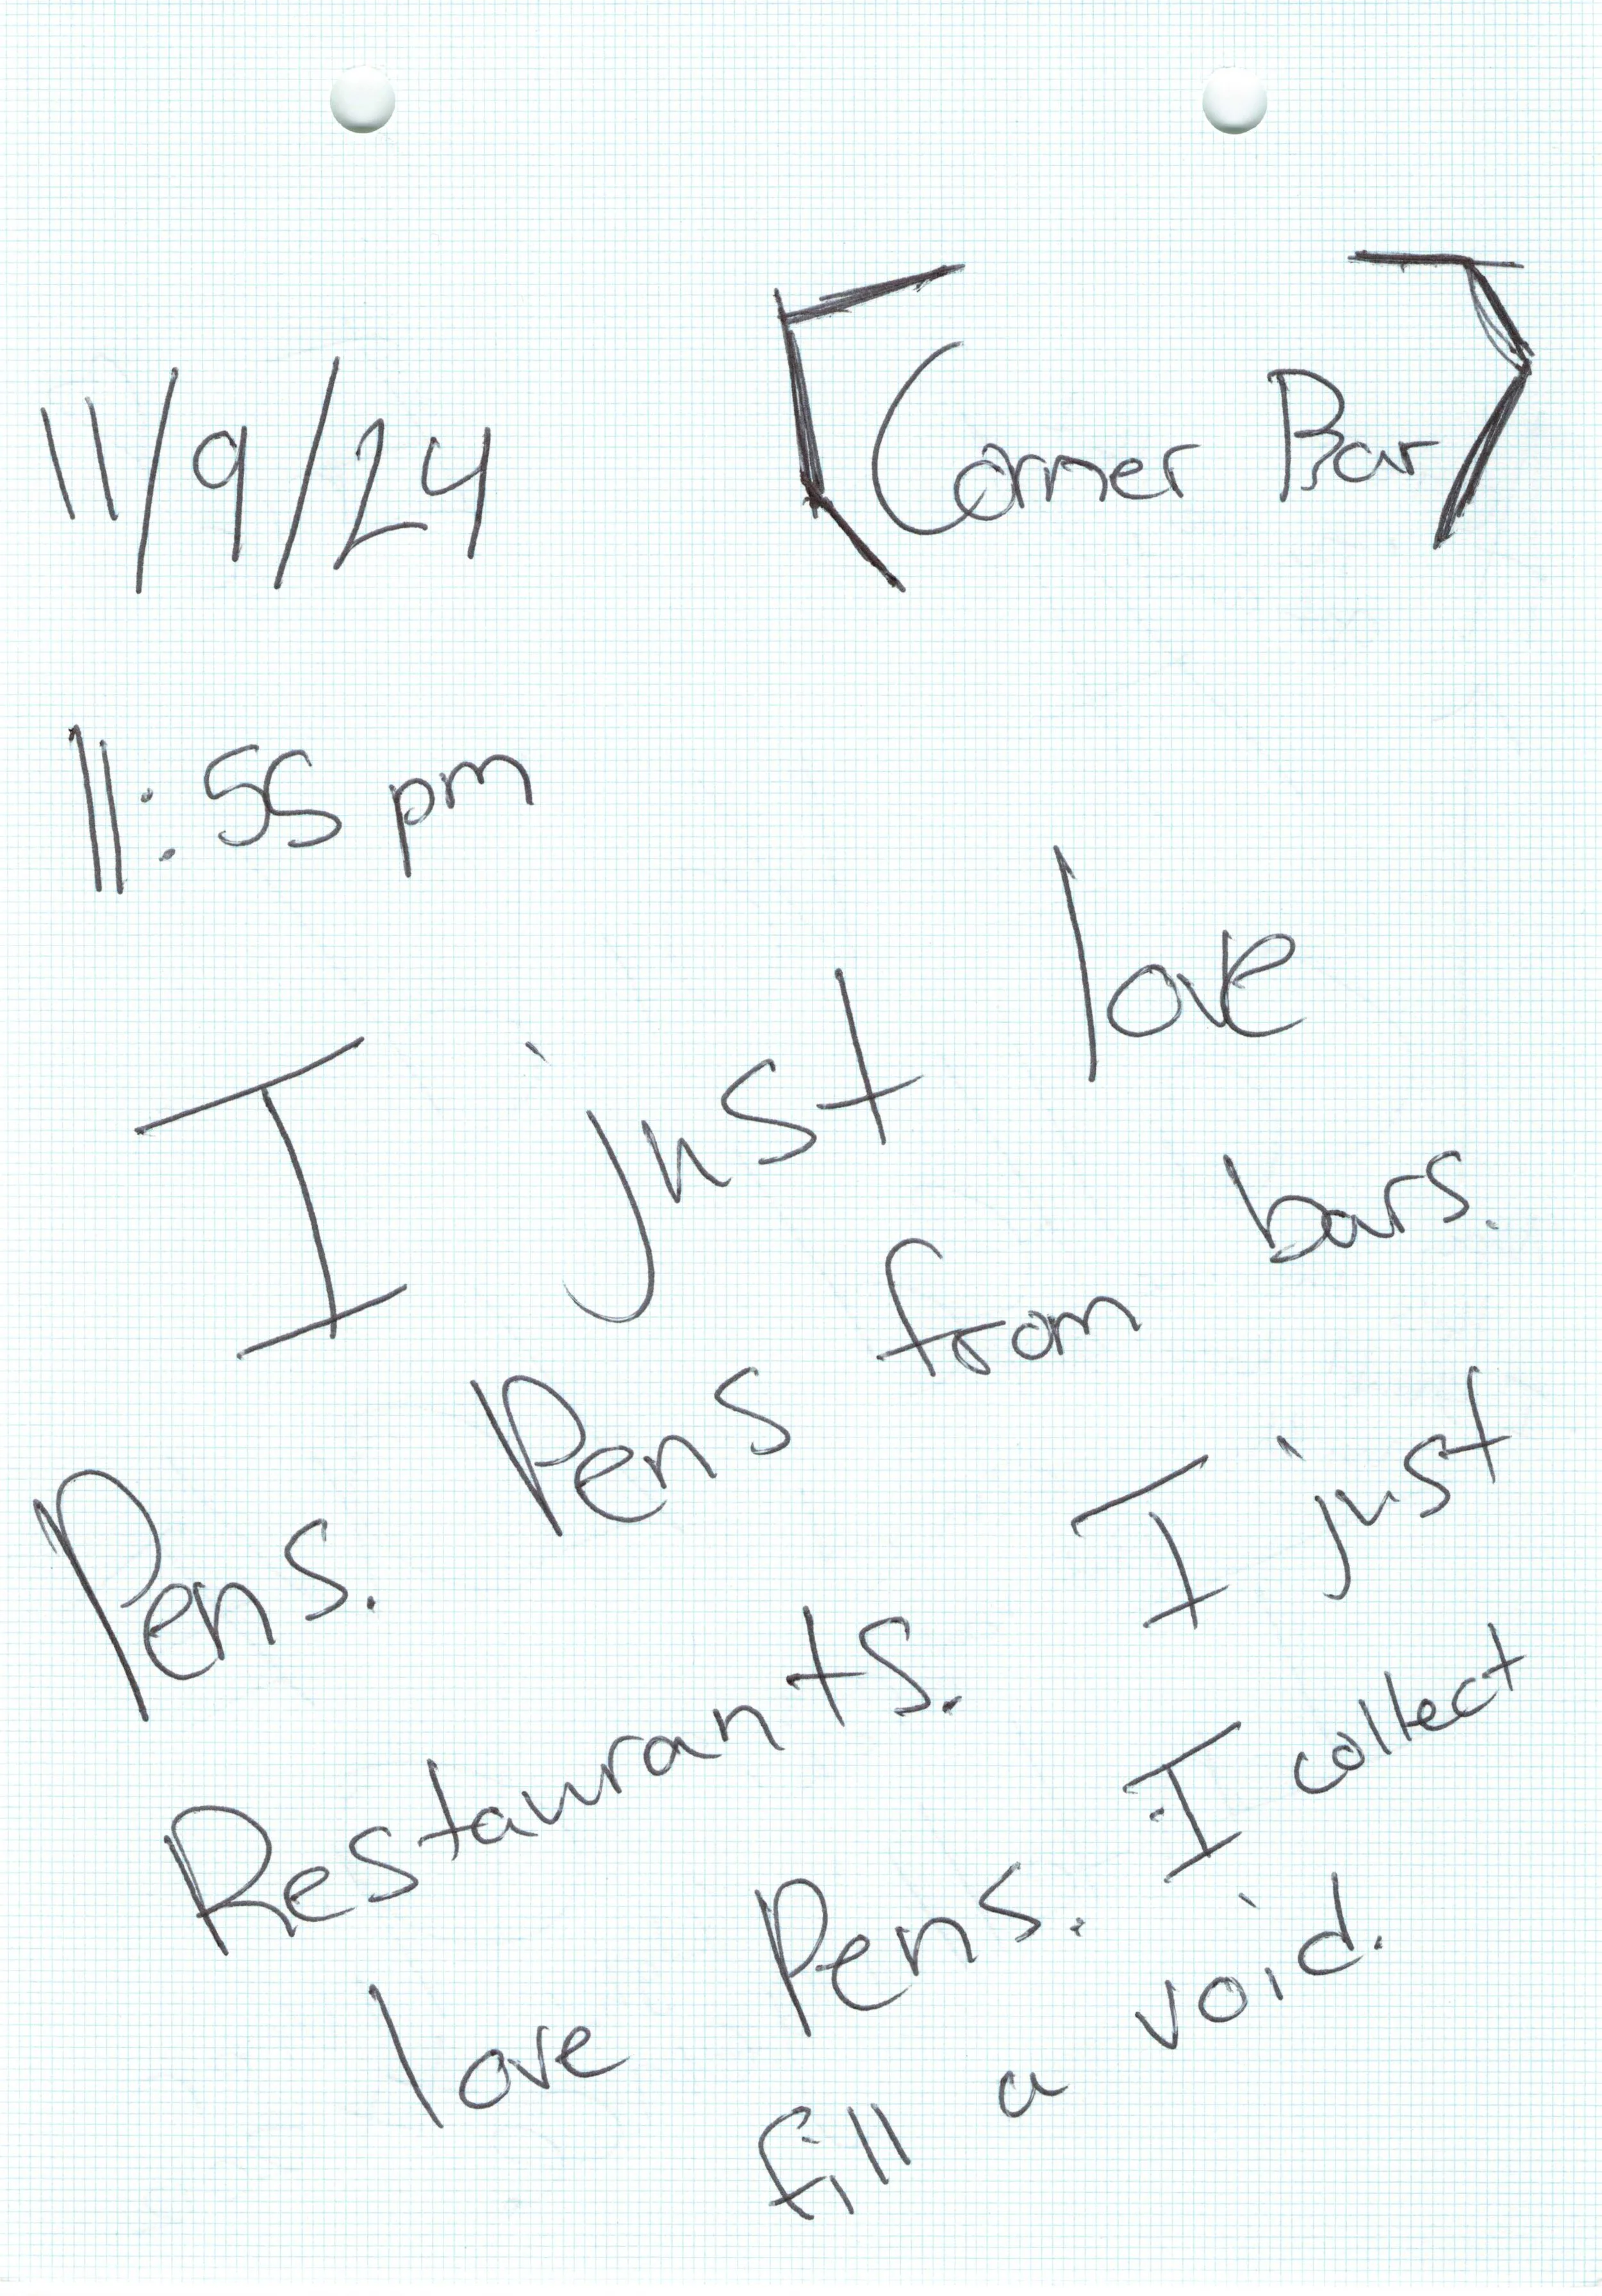 11/9/24
Corner Bar
11:55 pm
I just love
Pens. Pens from bars.
Restaurants. I just
love Pens. I collect
fill a void.